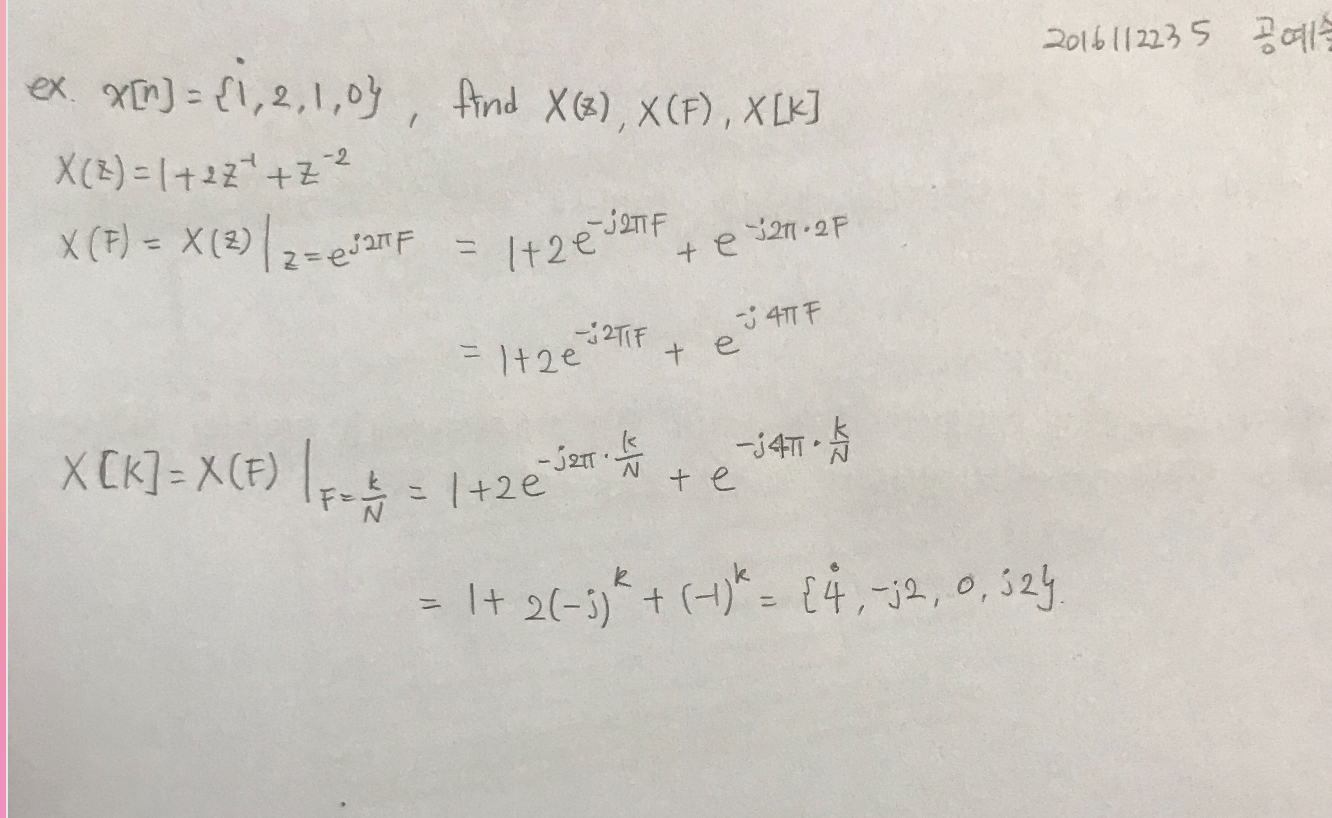 2016112235 공예솔
ex. x[n] = {1, 2, 1, 0}, find X(z), X(F), X[k]
X(z) = 1 + 2z⁻¹ + z⁻²
X(F) = X(z) |z=e^{j2πF} = 1 + 2e^{-j2πF} + e^{-j2π·2F}
= 1 + 2e^{-j2πF} + e^{-j4πF}
X[k] = X(F) |F=k/N = 1 + 2e^{-j2π·k/N} + e^{-j4π·k/N}
= 1 + 2(-j)^k + (-1)^k = {4, -j2, 0, j2}.